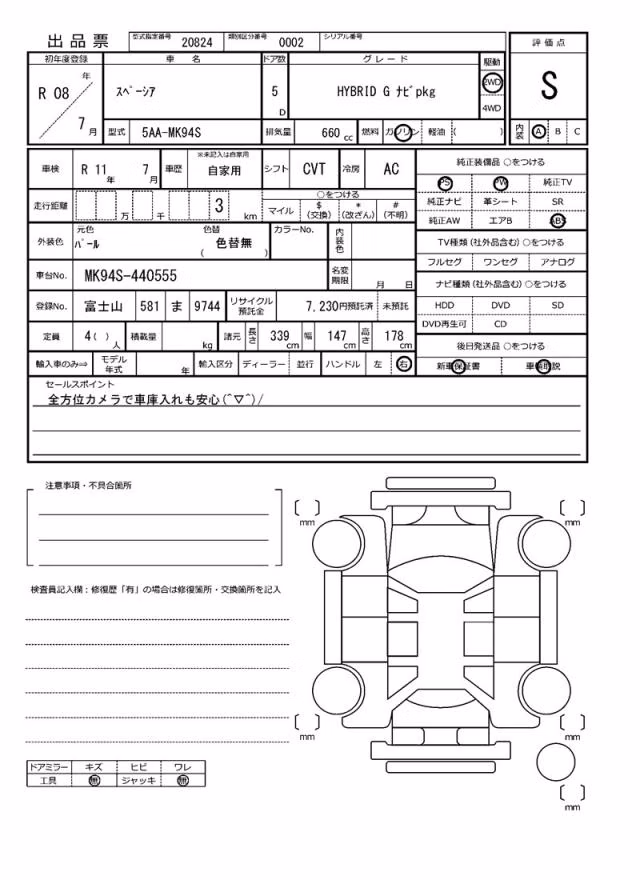 出品票 型式指定番号 20824 類別区分番号 0002 シリアル番号
評価点
S
初年度登録 車名 ドア数 グレード 駆動
R 08 年 7 月 スペーシア 5 D HYBRID G ナビpkg 2WD
4WD
型式 5AA-MK94S 排気量 660 cc 燃料 ガソリン 軽油 ( )
内装 A B C
車検 R 11 年 7 月 車歴 ※未記入は自家用 自家用 シフト CVT 冷房 AC
純正装備品 ○をつける
PS PW 純正TV
純正ナビ 革シート SR
純正AW エアB ABS
走行距離 万 千 3 km
○をつける
マイル $ (交換) * (改ざん) # (不明)
TV種類 (社外品含む) ○をつける
フルセグ ワンセグ アナログ
外装色 元色 パール 色替 色替無 ( ) カラーNo. 内装色
車台No. MK94S-440555 名変期限 月 日
ナビ種類 (社外品含む) ○をつける
HDD DVD SD
DVD再生可 CD
登録No. 富士山 581 ま 9744 リサイクル預託金 7,230円預託済 未預託
定員 4( ) 人 積載量 kg 諸元 長さ 339 cm 幅 147 cm 高さ 178 cm
後日発送品 ○をつける
新車保証書 車輌取説
輸入車のみ⇒ モデル年式 年 輸入区分 ディーラー 並行 ハンドル 左 右
セールスポイント
全方位カメラで車庫入れも安心(^▽^)/
注意事項・不具合箇所
検査員記入欄：修復歴「有」の場合は修復箇所・交換箇所を記入
mm
mm
mm
mm
mm
ドアミラー キズ ヒビ ワレ
工具 無 ジャッキ 無